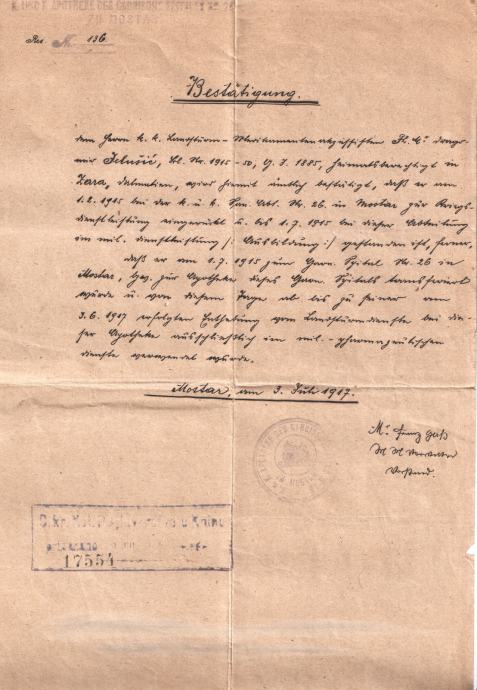 K. UND K. APOTHEKE DES GARNISONSSPITALS Nr. 26
ZU MOSTAR
Res. No. 136
Bestätigung.
dem Herrn k. k. Landsturm-Medikamentenakzessisten Mr. Drago-
mir Jelušić, Nr. 1915-50, G. J. 1885, heimatsberechtigt in
Zara, Dalmatien, wird hiemit ämtlich bestätigt, daß er am
1.2.1915 bei der k. u. k. San. Abt. Nr. 26 in Mostar zur Kriegs-
dienstleistung eingerückt u. bis 1.7.1915 bei dieser Abteilung
im mil. dienstleistung /: Ausbildung :/ gestanden ist, ferner,
daß er am 1.7.1915 zum Garn. Spital Nr. 26 in
Mostar, bez. zur Apotheke dieses Garn. Spitals transferiert
wurde u. von diesem Tage ab bis zu seiner am
3.6.1917 erfolgten Enthebung vom Landsturmdienste bei die-
ser Apotheke ausschließlich im mil.-pharmazeutischen
dienste verwendet wurde.
Mostar, am 3. Juli 1917.
Mr. Franz
Vorstand.
C. kr. u Kninu
17554